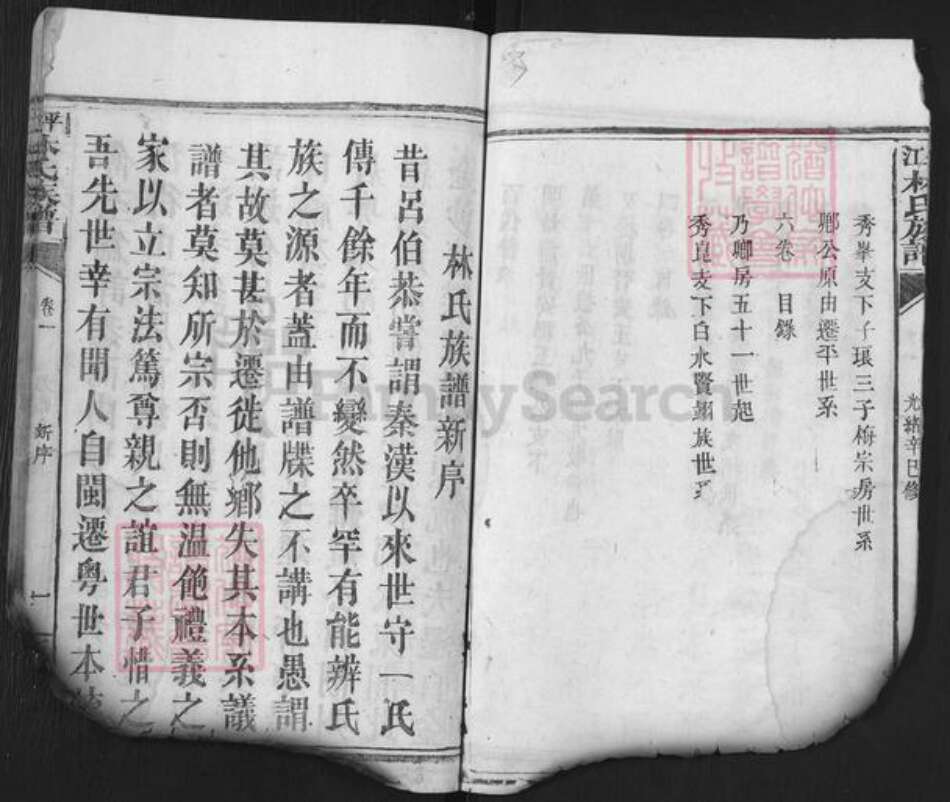 江林氏族譜
光緒辛巳修
秀峯支下子環三子梅宗房世系
鄉公原由遷平世系
六卷 目錄
乃鄉房五十一世起
秀崑支下白水賢翊族世系
林氏族譜新序
昔呂伯恭嘗謂秦漢以來世守一氏
傳千餘年而不變然卒罕有能辨氏
族之源者蓋由譜牒之不講也愚謂
其故莫甚於遷徙他鄉失其本系議
譜者莫知所宗否則無溫飽禮義之
家以立宗法篤尊親之誼君子惜之
吾先世幸有聞人自閩遷粵世本
林氏族譜
卷一
新序
一
FamilySearch